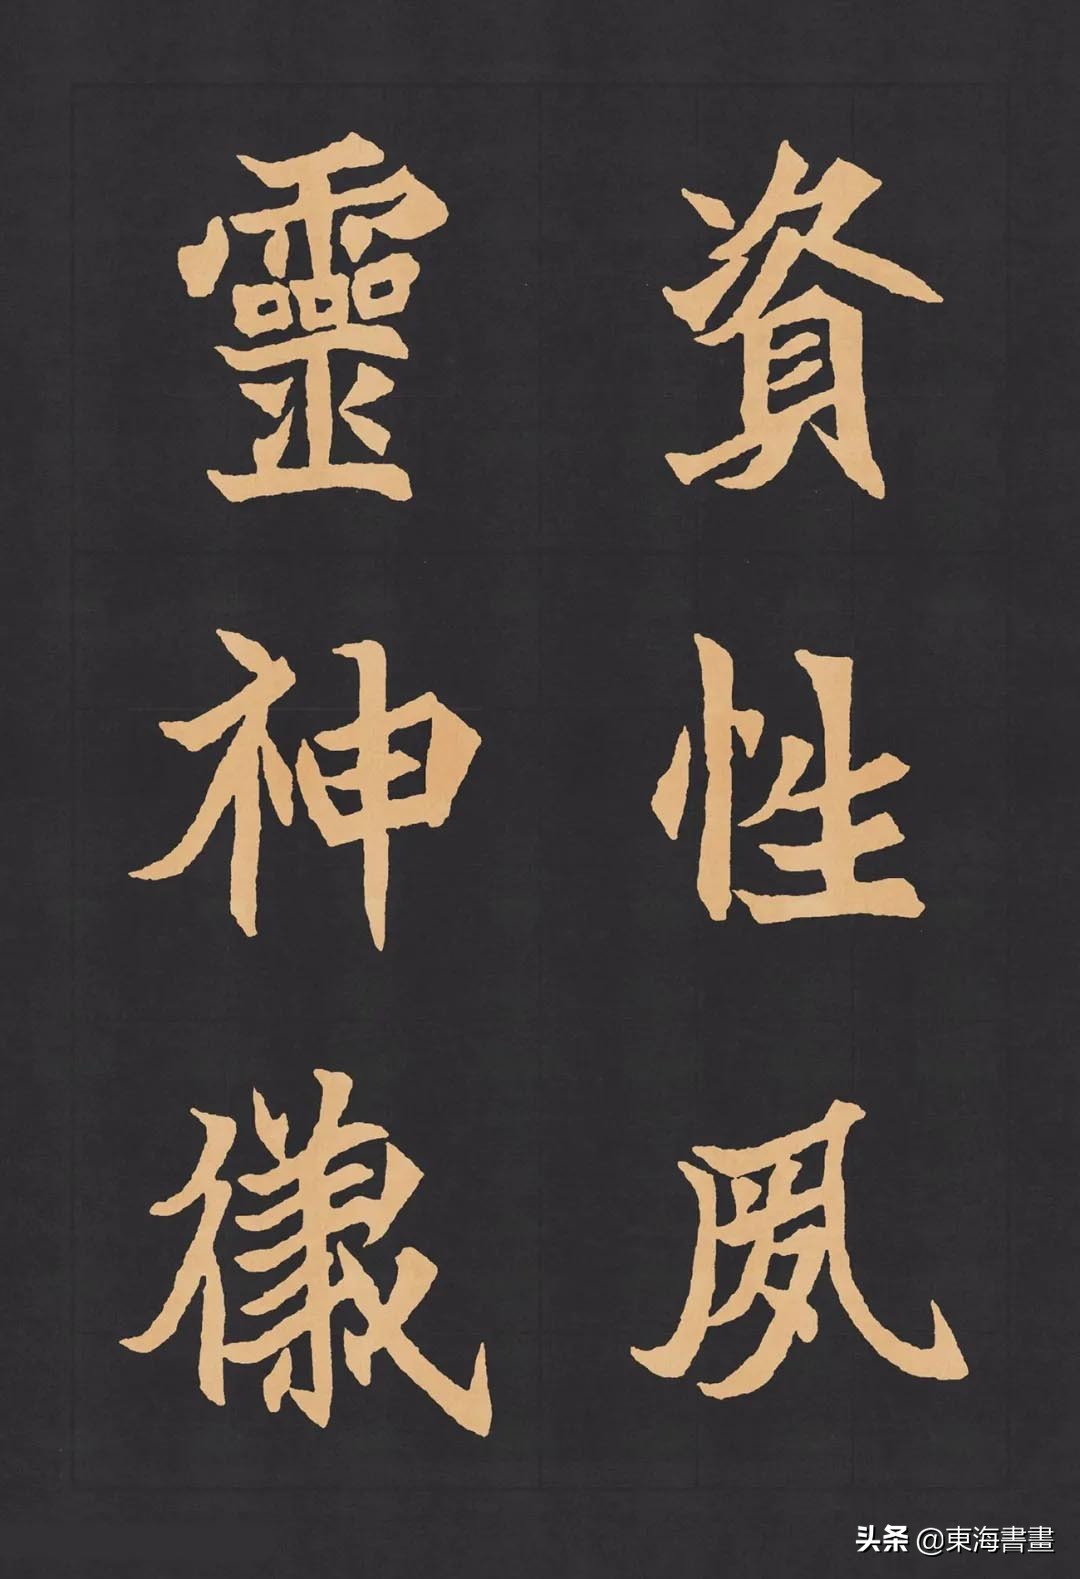 資性夙
靈神儀
头条 @東海書畫